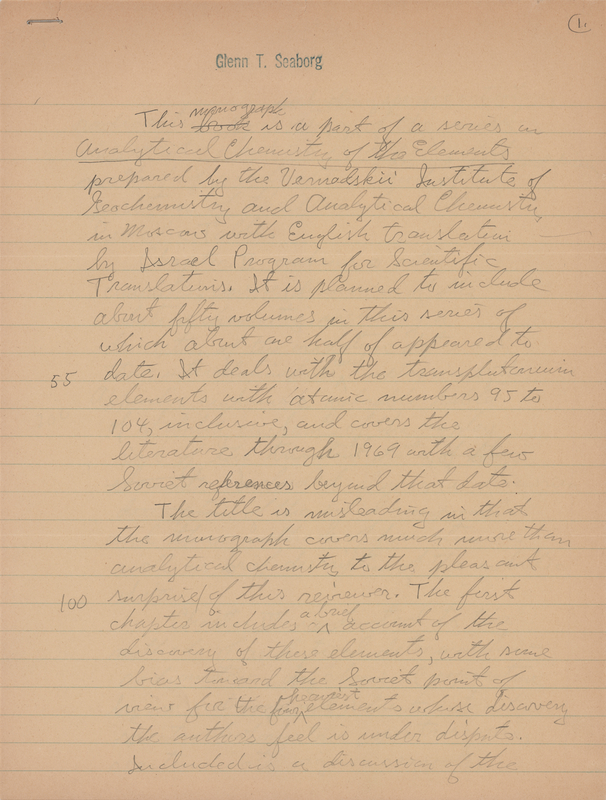 1.
Glenn T. Seaborg
monograph
This book is a part of a series on
Analytical Chemistry of the Elements
prepared by the Vernadskii Institute of
Geochemistry and Analytical Chemistry
in Moscow with English translation
by Israel Program for Scientific
Translations. It is planned to include
about fifty volumes in this series of
which about one half of appeared to
55 date. It deals with the transplutonium
elements with atomic numbers 95 to
104, inclusive, and covers the
literature through 1969 with a few
Soviet references beyond that date.
The title is misleading in that
the monograph covers much more than
analytical chemistry to the pleasant
surprise of this reviewer. The first
a brief
100 chapter includes account of the
discovery of these elements, with some
bias toward the Soviet point of
heaviest
view for the elements whose discovery
the authors feel is under dispute.
Included is a discussion of the